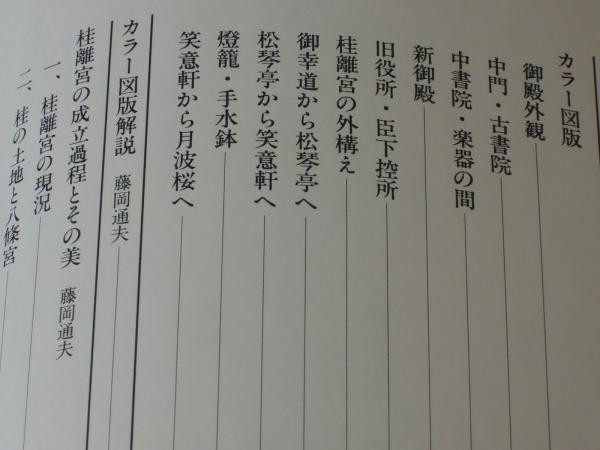 カラー図版
御殿外観
中門・古書院
中書院・楽器の間
新御殿
旧役所・臣下控所
桂離宮の外構え
御幸道から松琴亭へ
松琴亭から笑意軒へ
燈籠・手水鉢
笑意軒から月波桜へ
カラー図版解説 藤岡通夫
桂離宮の成立過程とその美 藤岡通夫
一、桂離宮の現況
二、桂の土地と八條宮